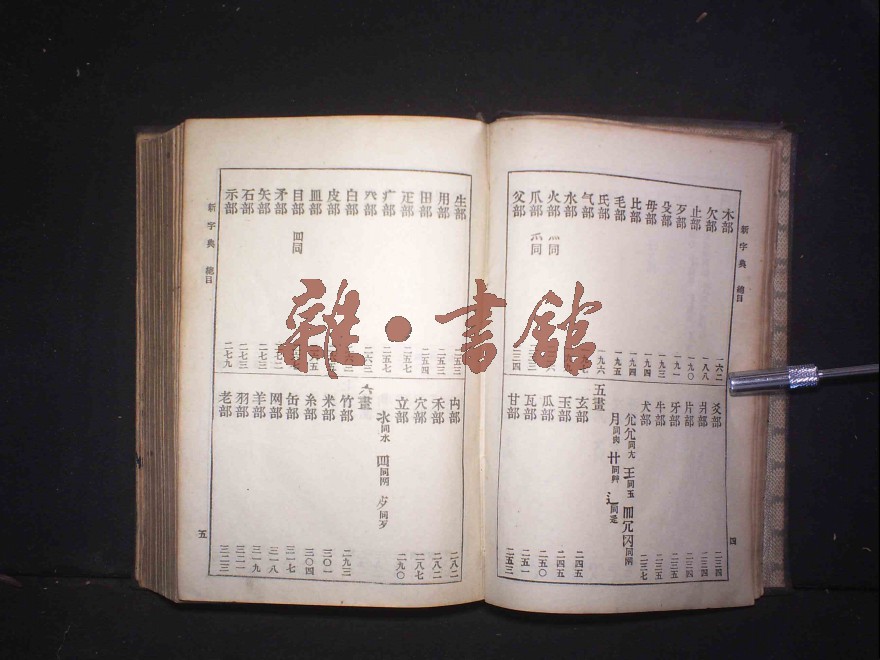 新字典 總目
木部 一六二
欠部 一八八
止部 一九〇
歹部 一九一
殳部 一九三
毋部 一九四
比部 一九四
毛部 一九五
氏部 一九六
气部
水部
火部 灬同
爪部 爫同
父部 二三四
爻部 二三四
爿部 二三四
片部 二三四
牙部 二三五
牛部 二三五
犬部 二三七
同尢 王同玉 同网
月同肉 同艸 辶同辵
五畫
玄部 二四五
玉部 二四五
瓜部 二五〇
瓦部 二五一
甘部 二五三
四
生部 二五三
用部 二五三
田部 二五四
疋部 二五七
疒部 二五七
癶部 二六二
白部
皮部
皿部
目部 罒同
矛部
矢部 二七三
石部 二七三
示部 二七九
禸部 二八二
禾部 二八二
穴部 二八七
立部 二九〇
氺同水 罒同网 歺同歹
六畫
竹部 二九三
米部 三〇一
糸部 三〇四
缶部 三一七
网部 三一八
羊部 三一九
羽部 三二一
老部 三二三
新字典 總目
五
雜·書館